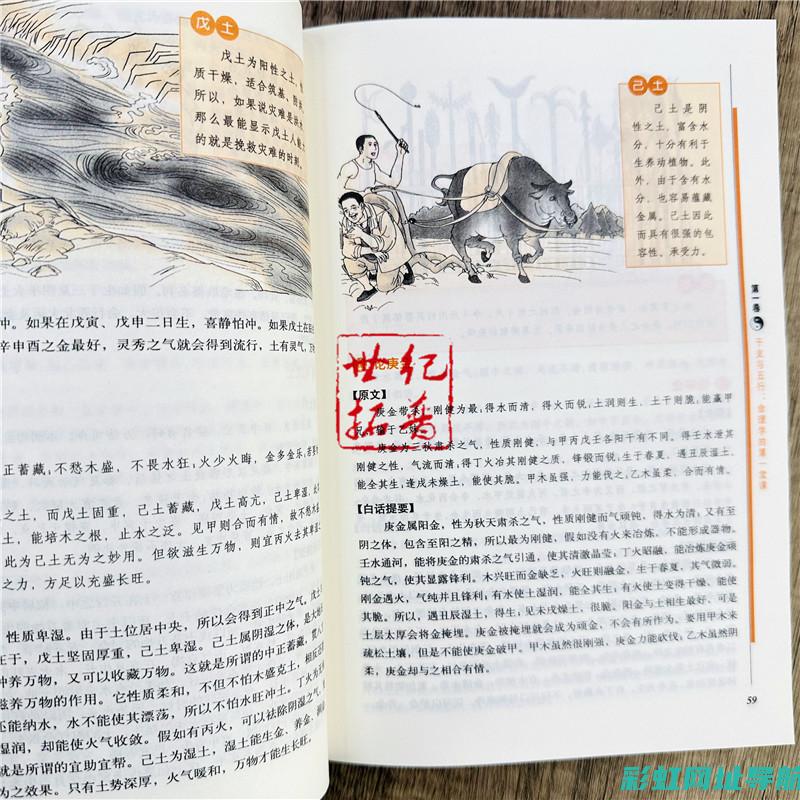 戊土
戊土为阳性之土，
质干燥，适合筑基、
所以，如果说灾难是
那么最能显示戊土人
的就是挽救灾难的时刻。
冲。如果在戊寅、戊申二日生，喜静怕冲。如果戊土在
辛申酉之金最好，灵秀之气就会得到流行，土有灵气，
正蓄藏；不愁木盛，不畏水狂；火少火晦，金多金乐，若
之土，而戊土固重，己土蓄藏，戊土高亢，己土卑湿，
土，能培木之根，止水之泛。见甲则合而有情，故不愁木
此为己土无为之妙用。但欲滋生万物，则宜丙火去其
之力，方足以充盛长旺。
性质卑湿。由于土位居中央，所以会得到正中之气。
在于，戊土坚固厚重，己土卑湿。己土属阴湿之体，是大
养万物，又可以收藏万物。这就是所谓的中正蓄藏，
滋养万物的作用。它性质柔和，不但不怕木盛克土，相反
还能纳水，水不能使其漂荡，所以不怕水旺冲土。丁火为
湿润，却能使火气收敛。假如有丙火，可以祛除阴湿之气，
就是所谓的宜助宜帮。己土为湿土，湿土能生金、养金、
为之效果。只有土势深厚，火气暖和，万物才能生长旺。
己土
己土是阴
性之土，富含水
分，十分有利于
生养动植物。此
外，由于含有水
分，也容易蕴藏
金属。己土因此
而具有很强的包
容性、承受力。
第一卷
干支与五行：命理学的第一堂课
论庚金
世纪
拓普
【原文】
庚金带杀，刚健为最，得水而清，得火而锐，土润则生，土干则脆，能赢甲
兄，输于乙妹。
庚金为三秋肃杀之气，性质刚健，与甲丙戊壬各阳干有不同。得壬水泄其
刚健之性，气流而清；得丁火冶其刚健之质，锋锻而锐；生于春夏，遇丑辰湿土，
能全其生，逢戌未燥土，能使其脆。甲木虽强，力能伐之；乙木虽柔，合而有情。
【白话提要】
庚金属阳金，性为秋天肃杀之气，性质刚健而气顽钝，得水为清；又有至
阴之体，包含至阳之精，所以最为刚健，假如没有火来冶炼，不能形成器物。
壬水通河，能将庚金的肃杀之气引通，使其清澈晶莹；丁火昭融，能冶炼庚金顽
钝之气，使其显露锋利。木兴旺而金缺乏，火旺则融金，生于春夏，其气微弱。
刚金遇火，气纯并且锋利；有水使土湿润，能全其生；有火使土变得干燥，能使
其脆。所以，遇丑辰湿土，得生，见未戌燥土，很脆。阳金与土相生最好，可是
土层太厚会将金掩埋。庚金被掩埋就会成为顽金，不会有所作为。要用甲木来
疏松土壤，但是不能使庚金破甲。甲木虽然很刚强，庚金力能砍伐；乙木虽然阴
柔，庚金却与之相合有情。
59
彩虹网址导航网